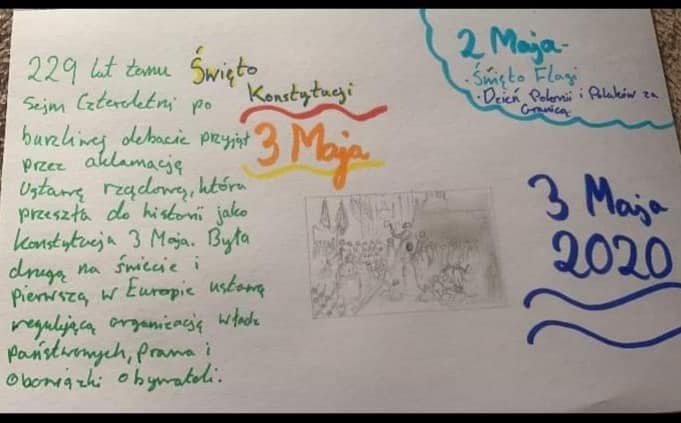 229 lat temu
Sejm Czteroletni po
burzliwej debacie przyjął
przez aklamacją
Ustawę rządową, która
przeszła do historii jako
Konstytucja 3 Maja. Była
drugą na świecie i
pierwszą w Europie ustawą
regulującą organizację władz
państwowych, prawa i
obowiązki obywateli.
Święto
Konstytucji
3 Maja
2 Maja-
·Święto Flagi
·Dzień Polonii i Polaków za
Granicą
3 Maja
2020